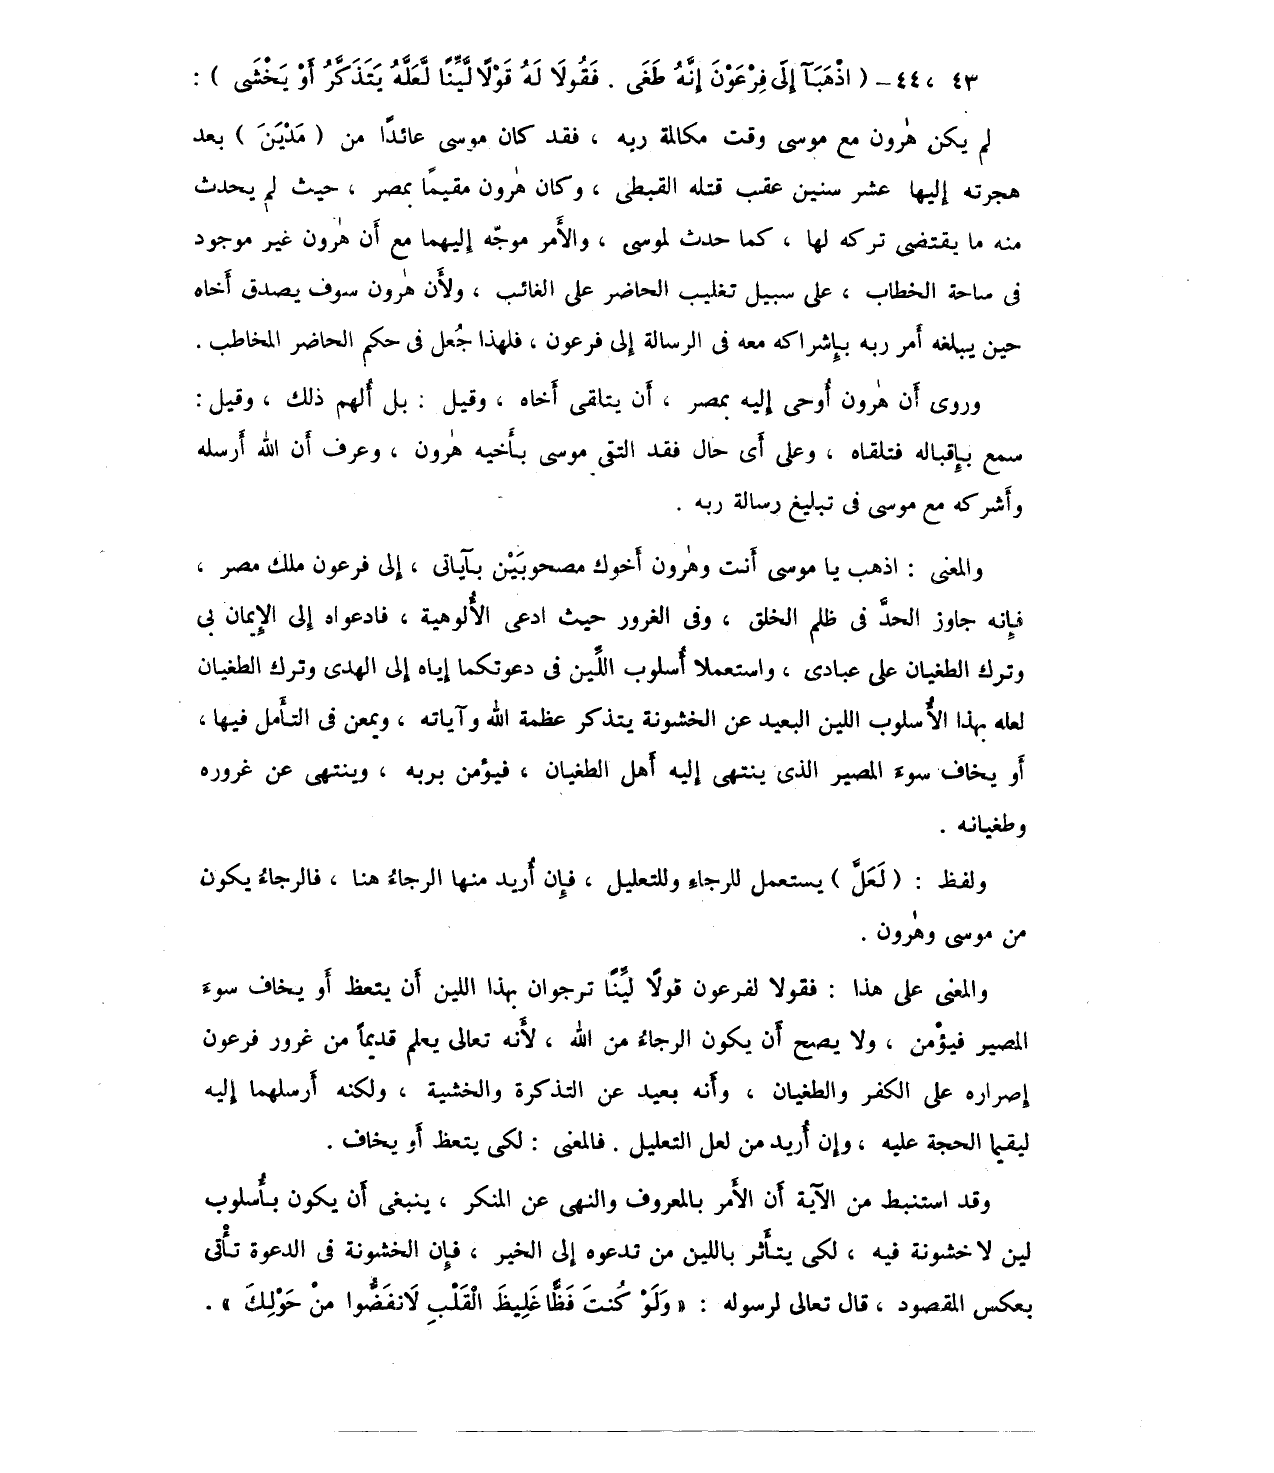 ٤٣ ، ٤٤ – ( اذْهَبَآ إِلَى فِرْعَوْنَ إِنَّهُ طَغَى . فَقُولَا لَهُ قَوْلًا لَّيِّنًا لَّعَلَّهُ يَتَذَكَّرُ أَوْ يَخْشَى ) :
لم يكن هٰرون مع موسى وقت مكالمة ربه ، فقد كان موسى عائدًا من ( مَدْيَنَ ) بعد
هجرته إليها عشر سنين عقب قتله القبطى ، وكان هٰرون مقيمًا بمصر ، حيث لم يحدث
منه ما يقتضى تركه لها ، كما حدث لموسى ، والأَمر موجّه إليهما مع أَن هٰرون غير موجود
فى ساحة الخطاب ، على سبيل تغليب الحاضر على الغائب ، ولأَن هٰرون سوف يصدق أَخاه
حين يبلغه أَمر ربه بإِشراكه معه فى الرسالة إلى فرعون ، فلهذا جُعل فى حكم الحاضر المخاطب .
وروى أَن هٰرون أُوحى إليه بمصر ، أَن يتلقى أَخاه ، وقيل : بل أُلهم ذلك ، وقيل :
سمع بإِقباله فتلقاه ، وعلى أَى حال فقد التقى موسى بأَخيه هٰرون ، وعرف أَن الله أَرسله
وأَشركه مع موسى فى تبليغ رسالة ربه .
والمعنى : اذهب يا موسى أَنت وهٰرون أَخوك مصحوبَيْن بآياتى ، إلى فرعون ملك مصر ،
فإِنه جاوز الحدَّ فى ظلم الخلق ، وفى الغرور حيث ادعى الأُلوهية ، فادعواه إلى الإِيمان بى
وترك الطغيان على عبادى ، واستعملا أُسلوب اللَّين فى دعوتكما إياه إلى الهدى وترك الطغيان
لعله بهذا الأُسلوب اللين البعيد عن الخشونة يتذكر عظمة الله وآياته ، ويمعن فى التأَمل فيها ،
أَو يخاف سوءَ المصير الذى ينتهى إليه أَهل الطغيان ، فيؤمن بربه ، وينتهى عن غروره
وطغيانه .
ولفظ : ( لَعَلَّ ) يستعمل للرجاءِ وللتعليل ، فإِن أُريد منها الرجاءُ هنا ، فالرجاءُ يكون
من موسى وهٰرون .
والمعنى على هذا : فقولا لفرعون قولًا ليِّنًا ترجوان بهذا اللين أَن يتعظ أَو يخاف سوءَ
المصير فيؤْمن ، ولا يصح أَن يكون الرجاءُ من الله ، لأَنه تعالى يعلم قديماً من غرور فرعون
إصراره على الكفر والطغيان ، وأَنه بعيد عن التذكرة والخشية ، ولكنه أَرسلهما إليه
ليقيما الحجة عليه ، وإن أُريد من لعل التعليل . فالمعنى : لكى يتعظ أَو يخاف .
وقد استنبط من الآية أَن الأَمر بالمعروف والنهى عن المنكر ، ينبغى أَن يكون بأُسلوب
لين لا خشونة فيه ، لكى يتأَثر باللين من تدعوه إلى الخير ، فإِن الخشونة فى الدعوة تأْتى
بعكس المقصود ، قال تعالى لرسوله : « وَلَوْ كُنتَ فَظًّا غَلِيظَ الْقَلْبِ لَانفَضُّوا مِنْ حَوْلِكَ » .